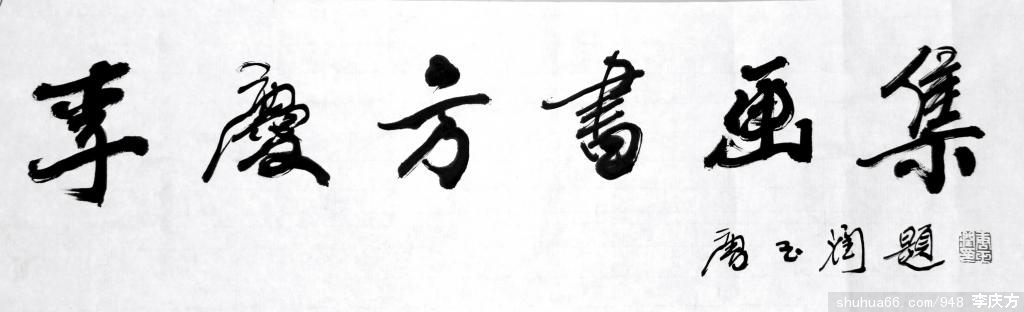 李慶方書画集
唐玉润題
shuhua66.com/948 李庆方